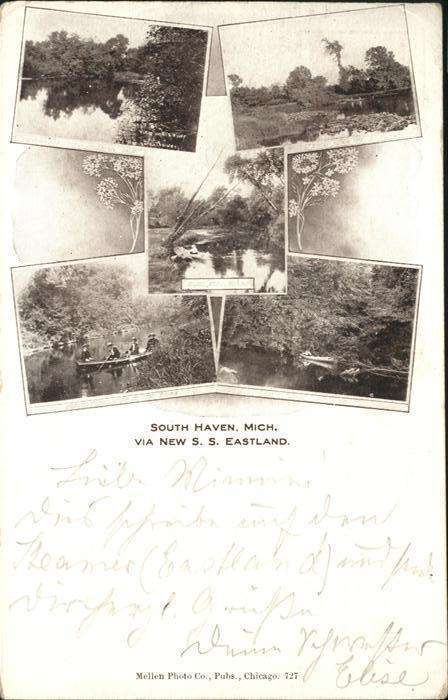 SOUTH HAVEN, MICH.
VIA NEW S. S. EASTLAND.
Liebe Minnie!
Dies schreibe auf dem
Steamer (Eastland) und
dir herzl. Grüße
Deine Schwester
Elise
Mellen Photo Co., Pubs., Chicago. 727